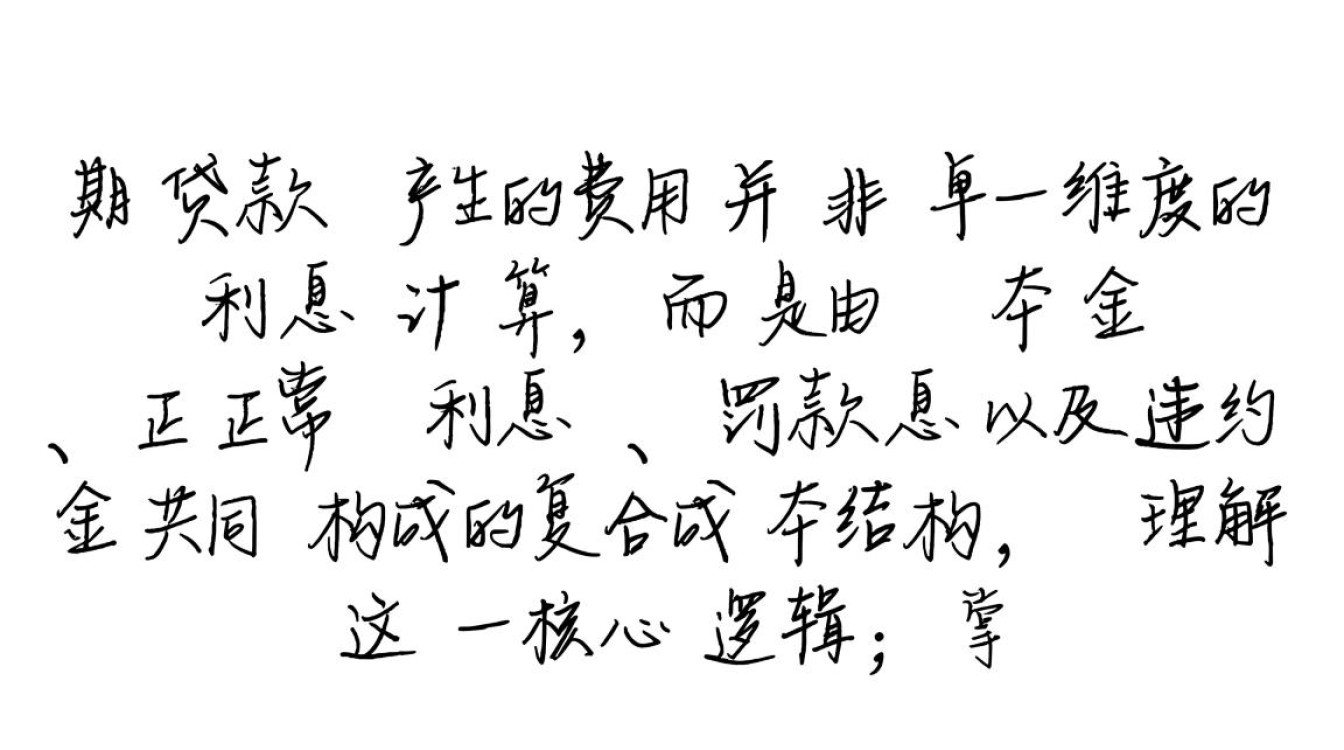 期贷款 产生的费用并 非 单一维度的
利息 计 算，而是由 本金
、正正常 利息、罚款息以及违约
金共同 构成的复合成 本结构， 理解
这 一核心 逻辑；掌